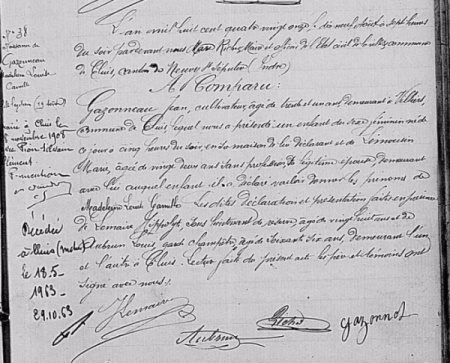 N° 38
Naissance de
Gazonneau
L'an mil huit cent quatre vingt onze, le dix neuf Août à sept heures
du soir par devant nous Maire et officier de l'état civil de la commune
de Cluis, canton de Neuvy St Sépulcre (Indre)
A Comparu:
Gazonneau Jean, cultivateur, âgé de trente et un ans demeurant à
commune de Cluis, lequel nous a présenté un enfant du sexe féminin né de
ce jour à cinq heures du soir, en sa maison de lui déclarant et de
Marie, âgée de vingt deux ans sans profession, sa légitime épouse, demeurant
avec lui, auquel enfant il a déclaré vouloir donner les prénoms de
Madeleine Louise Camille. Les dites déclaration et présentation faites en présence
de Lemaire Hippolyte, sous lieutenant de réserve, âgé de vingt huit ans et de
Aubrun Louis, garde champêtre, âgé de soixante six ans, demeurant l'un
et l'autre à Cluis. Lecture faite du présent acte le père et témoins ont
signé avec nous.
Marié à Cluis le
novembre 1908
Décédée
à Cluis (Indre)
le 18.5-
1963
29.10.63
Lemaire
Aubrun
gazonnot